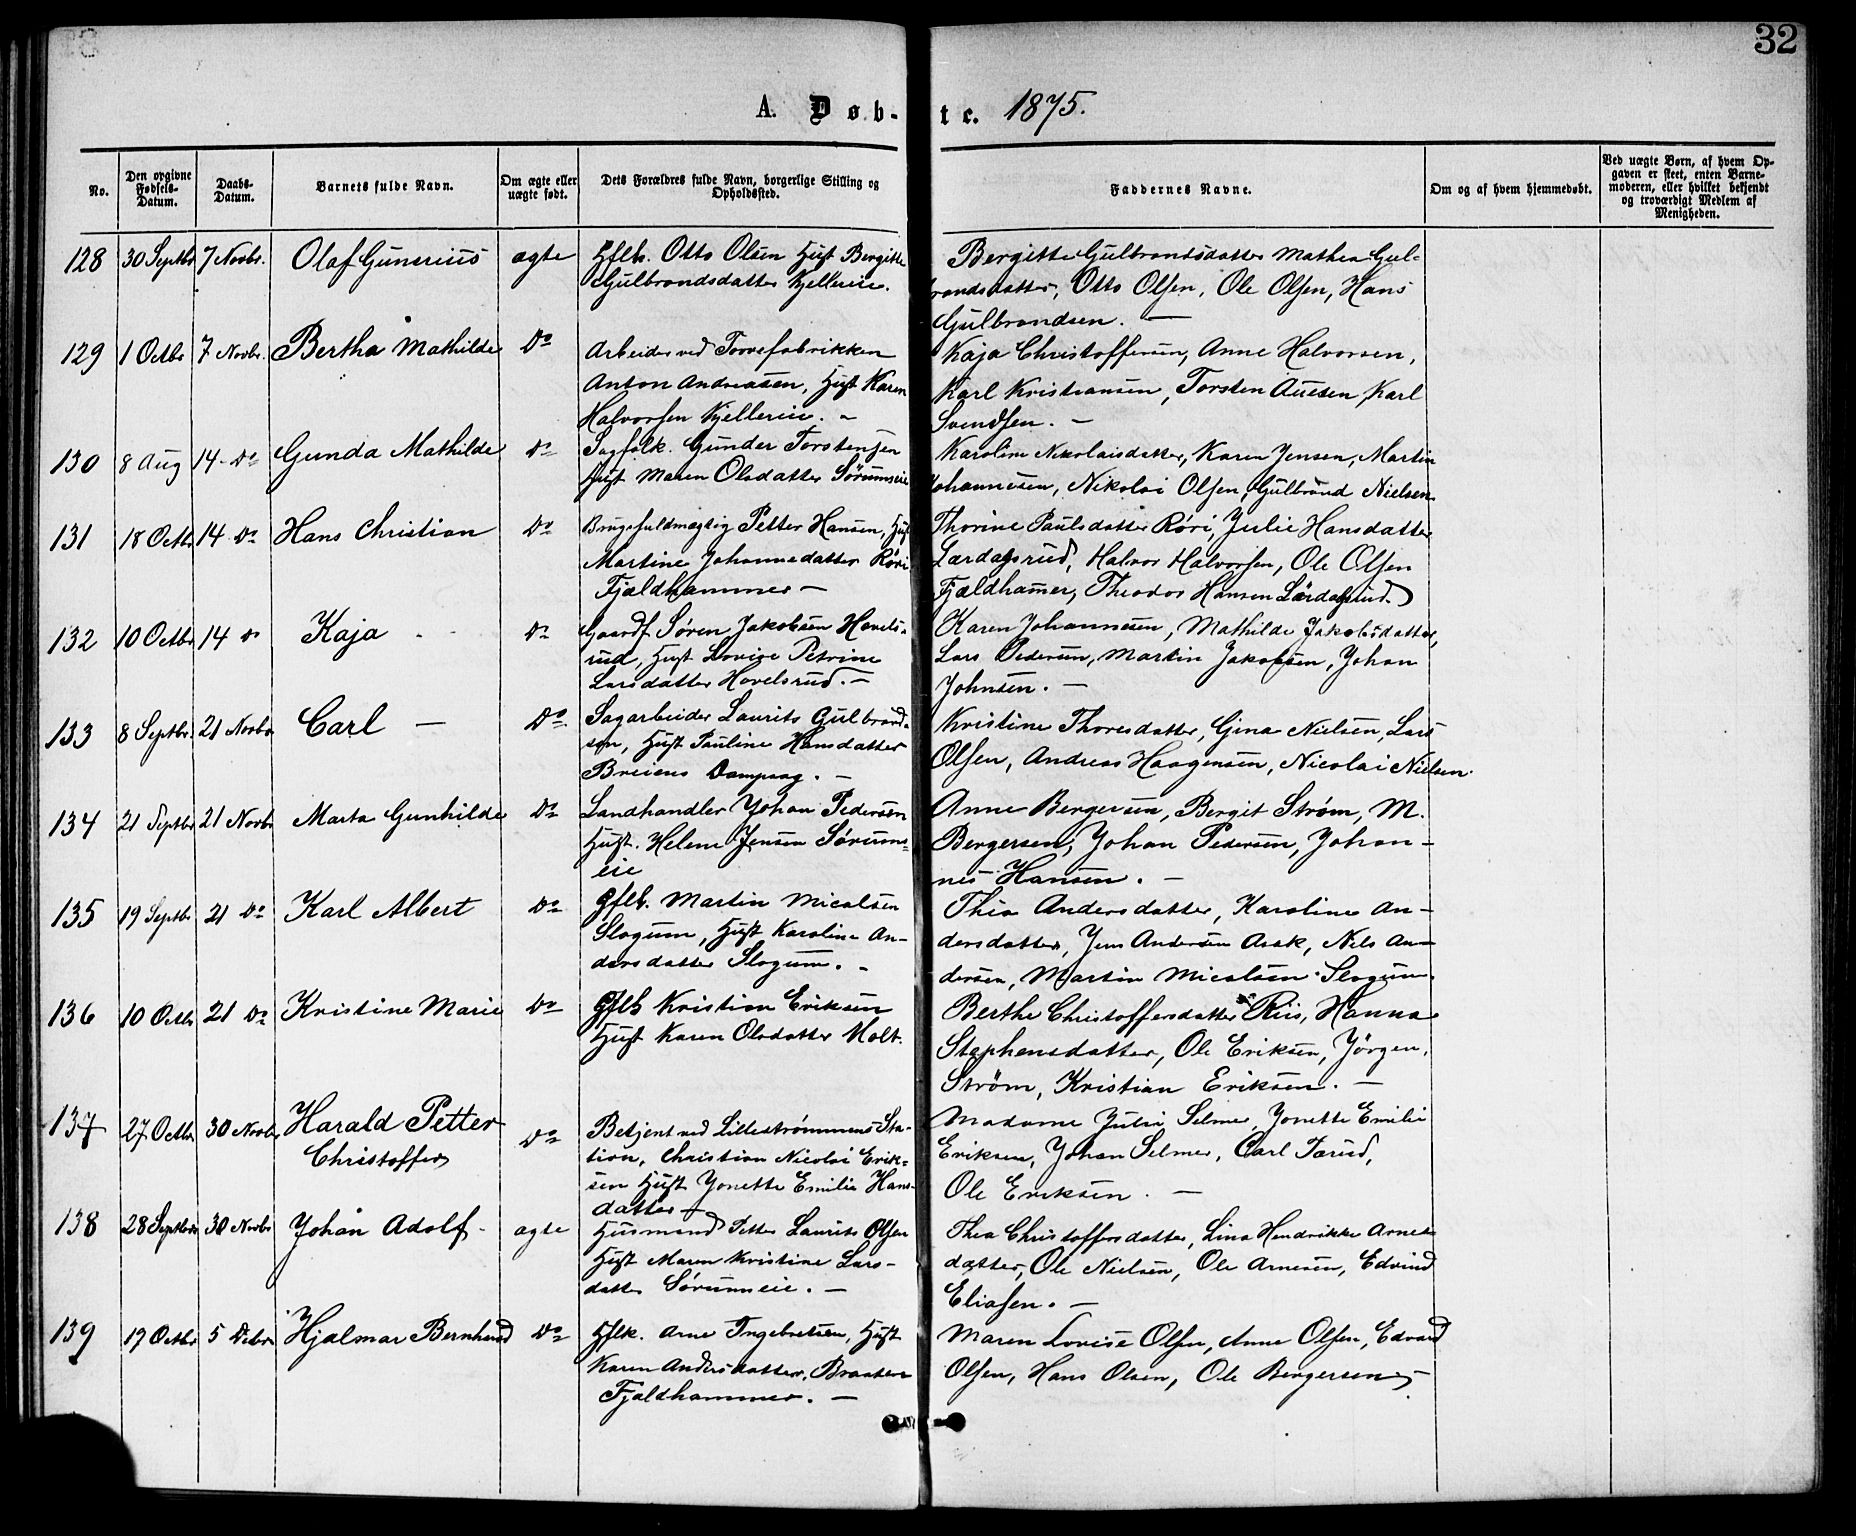 32
A. Døb-te. 1875.
No.
Den opgivne Fødsels-Datum.
Daabs-Datum.
Barnets fulde Navn.
Om ægte eller uægte født.
Dets Forældres fulde Navn, borgerlige Stilling og Opholdssted.
Faddernes Navne.
Om og af hvem hjemmedøbt.
Ved uægte Børn, af hvem Op-
gaven er skeet, enten Barne-
moderen, eller hvilket bekjendt
og troværdigt Medlem af
Menigheden.
128 30 Septbr 7 Novbr. Olaf Gunerius ægte Gflb. Otto Olsen Hust Bergitte
Gulbrandsdatter Kjellereie.
Bergitte Gulbrandsdatter Mathea Gul-
brandsdatter, Otto Olsen, Ole Olsen, Hans
Gulbrandsen. —
129 1 Octbr 7 Novbr. Bertha Mathilde Do Arbeider ved Torvefabrikken
Anton Andreasen, Hust Karen
Halvorsen Kjellereie. -
Kaja Christoffersen, Anne Halvorsen,
Karl Kristiansen, Torsten Auesen, Karl
Svendsen. —
130 8 Aug 14 - Do Gunda Mathilde Do Sagfolk. Gunder Torstensen
Hust Maren Olsdatter Sørumseie
Karoline Nikolaisdatter, Karen Jensen, Martin
Johannesen, Nikolai Olsen, Gulbrand Nielsen
131 18 Octbr 14 Do Hans Christian Do Brugsfuldmægtig Petter Hansen, Hust
Martine Johannedatter Røri
Fjældhammer —
Thorine Paulsdatter Røri, Julie Hansdatter
Lærdalsrud, Halvor Halvorsen, Ole Olsen
Fjældhamer, Theodor Hansen Lärdalsrud
132 10 Octbr 14 Do Kaja Do Gaardf Søren Jakobsen Hovels-
rud, Hust Lovise Petrine
Larsdatter Hovelsrud. —
Karen Johannesen, Mathilde Jakobsdatter,
Lars Pedersen, Martin Jakobsen, Johan
Johnsen. —
133 8 Septbr. 21 Novbr Carl — Do Sagarbeider Laurits Gulbrand-
sen, Hust Pauline Hansdatter
Breiens Dampsag. —
Kristine Thoresdatter, Gina Nielsen, Lars
Olsen, Andreas Haagensen, Nicolai Nielsen.
134 21 Septbr 21 Novbr Marta Gunhilde Do Landhandler Johan Pedersen
Hust. Helene Jensen Sørums-
eie
Anne Bergersen, Bergit Strøm, M.
Bergersen, Johan Pedersen, Johan-
nes Hansen. —
135 19 Septbr 21 Do Karl Albert Do Gflb. Martin Micalsen
Slogum, Hust Karoline An-
dersdatter Slogum. -
Thea Andersdatter, Karoline An-
dersdatter, Jens Andersen Asak, Nils An-
dersen, Martin Micalsen Slogum.
136 10 Octbr 21 Do Kristine Marie Do Gflb Kristian Eriksen
Hust Karen Olsdatter Holt.
Berthe Christoffersdatter Riis, Hanna
Stephensdatter, Ole Eriksen, Jörgen
Ström, Kristian Eriksen. —
137 27 Octbr 30 Novbr Harald Petter
Christoffer Do Betjent ved Lillestrømmens Sta-
tion, Christian Nicolai Erik-
sen Hust Jonette Emilie Hans-
datter —
Madame Julie Selmer, Jonette Emilie
Eriksen, Johan Selmer, Carl Færud,
Ole Eriksen. —
138 28 Septbr 30 Novbr Johan Adolf - ægte Husmand Petter Laurits Olsen
Hust Maren Kristine Lars-
datter Sørumeie. —
Thea Christoffersdatter, Lina Hendrikke Arnes-
datter, Ole Nielsen, Ole Arnesen, Edvind
Eliasen. —
139 19 Octbr 5 Debr Hjalmar Bernhard Do Hflk. Arne Ingebretsen, Hust
Karen Andersdatter, Braaten
Fjældhammer. —
Maren Lovise Olsen, Anne Olsen, Edvard
Olsen, Hans Olsen, Ole Bergersen